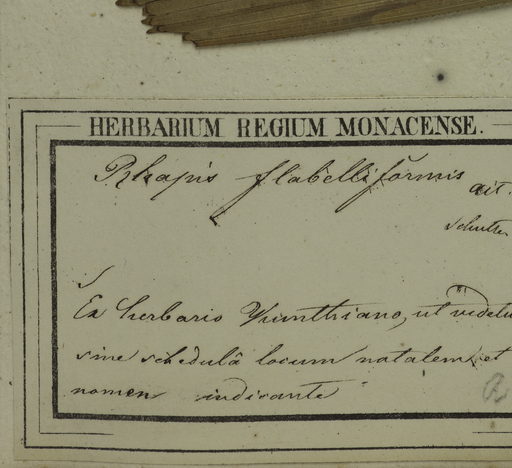 HERBARIUM REGIUM MONACENSE.
Rhapis flabelliformis ait.
Schultes
Ex herbario Kunthiano, ut videtur
sine schedulâ locum natalem et
nomen indicante